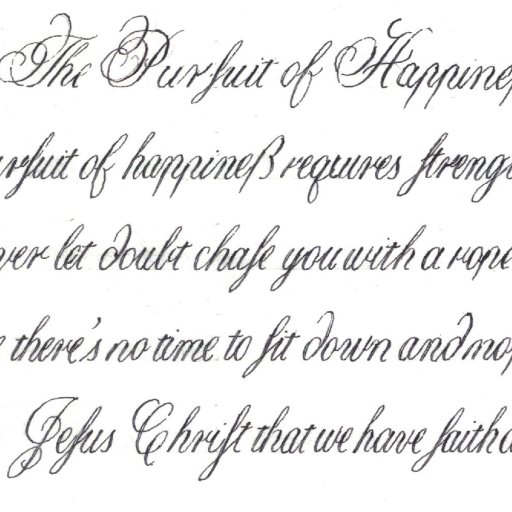 The Purſuit of Happineß
urſuit of happineß requires ſtreng
ver let doubt chaſe you with a rope
there's no time to ſit down and mop
Jeſus Chriſt that we have faith a